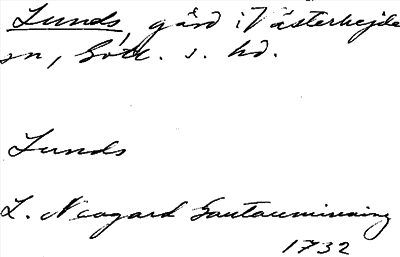 Lunds, gård i Västerhejde
sn, Gotl. s. hd.
Lunds
L. Neogard Gautauminning
1732